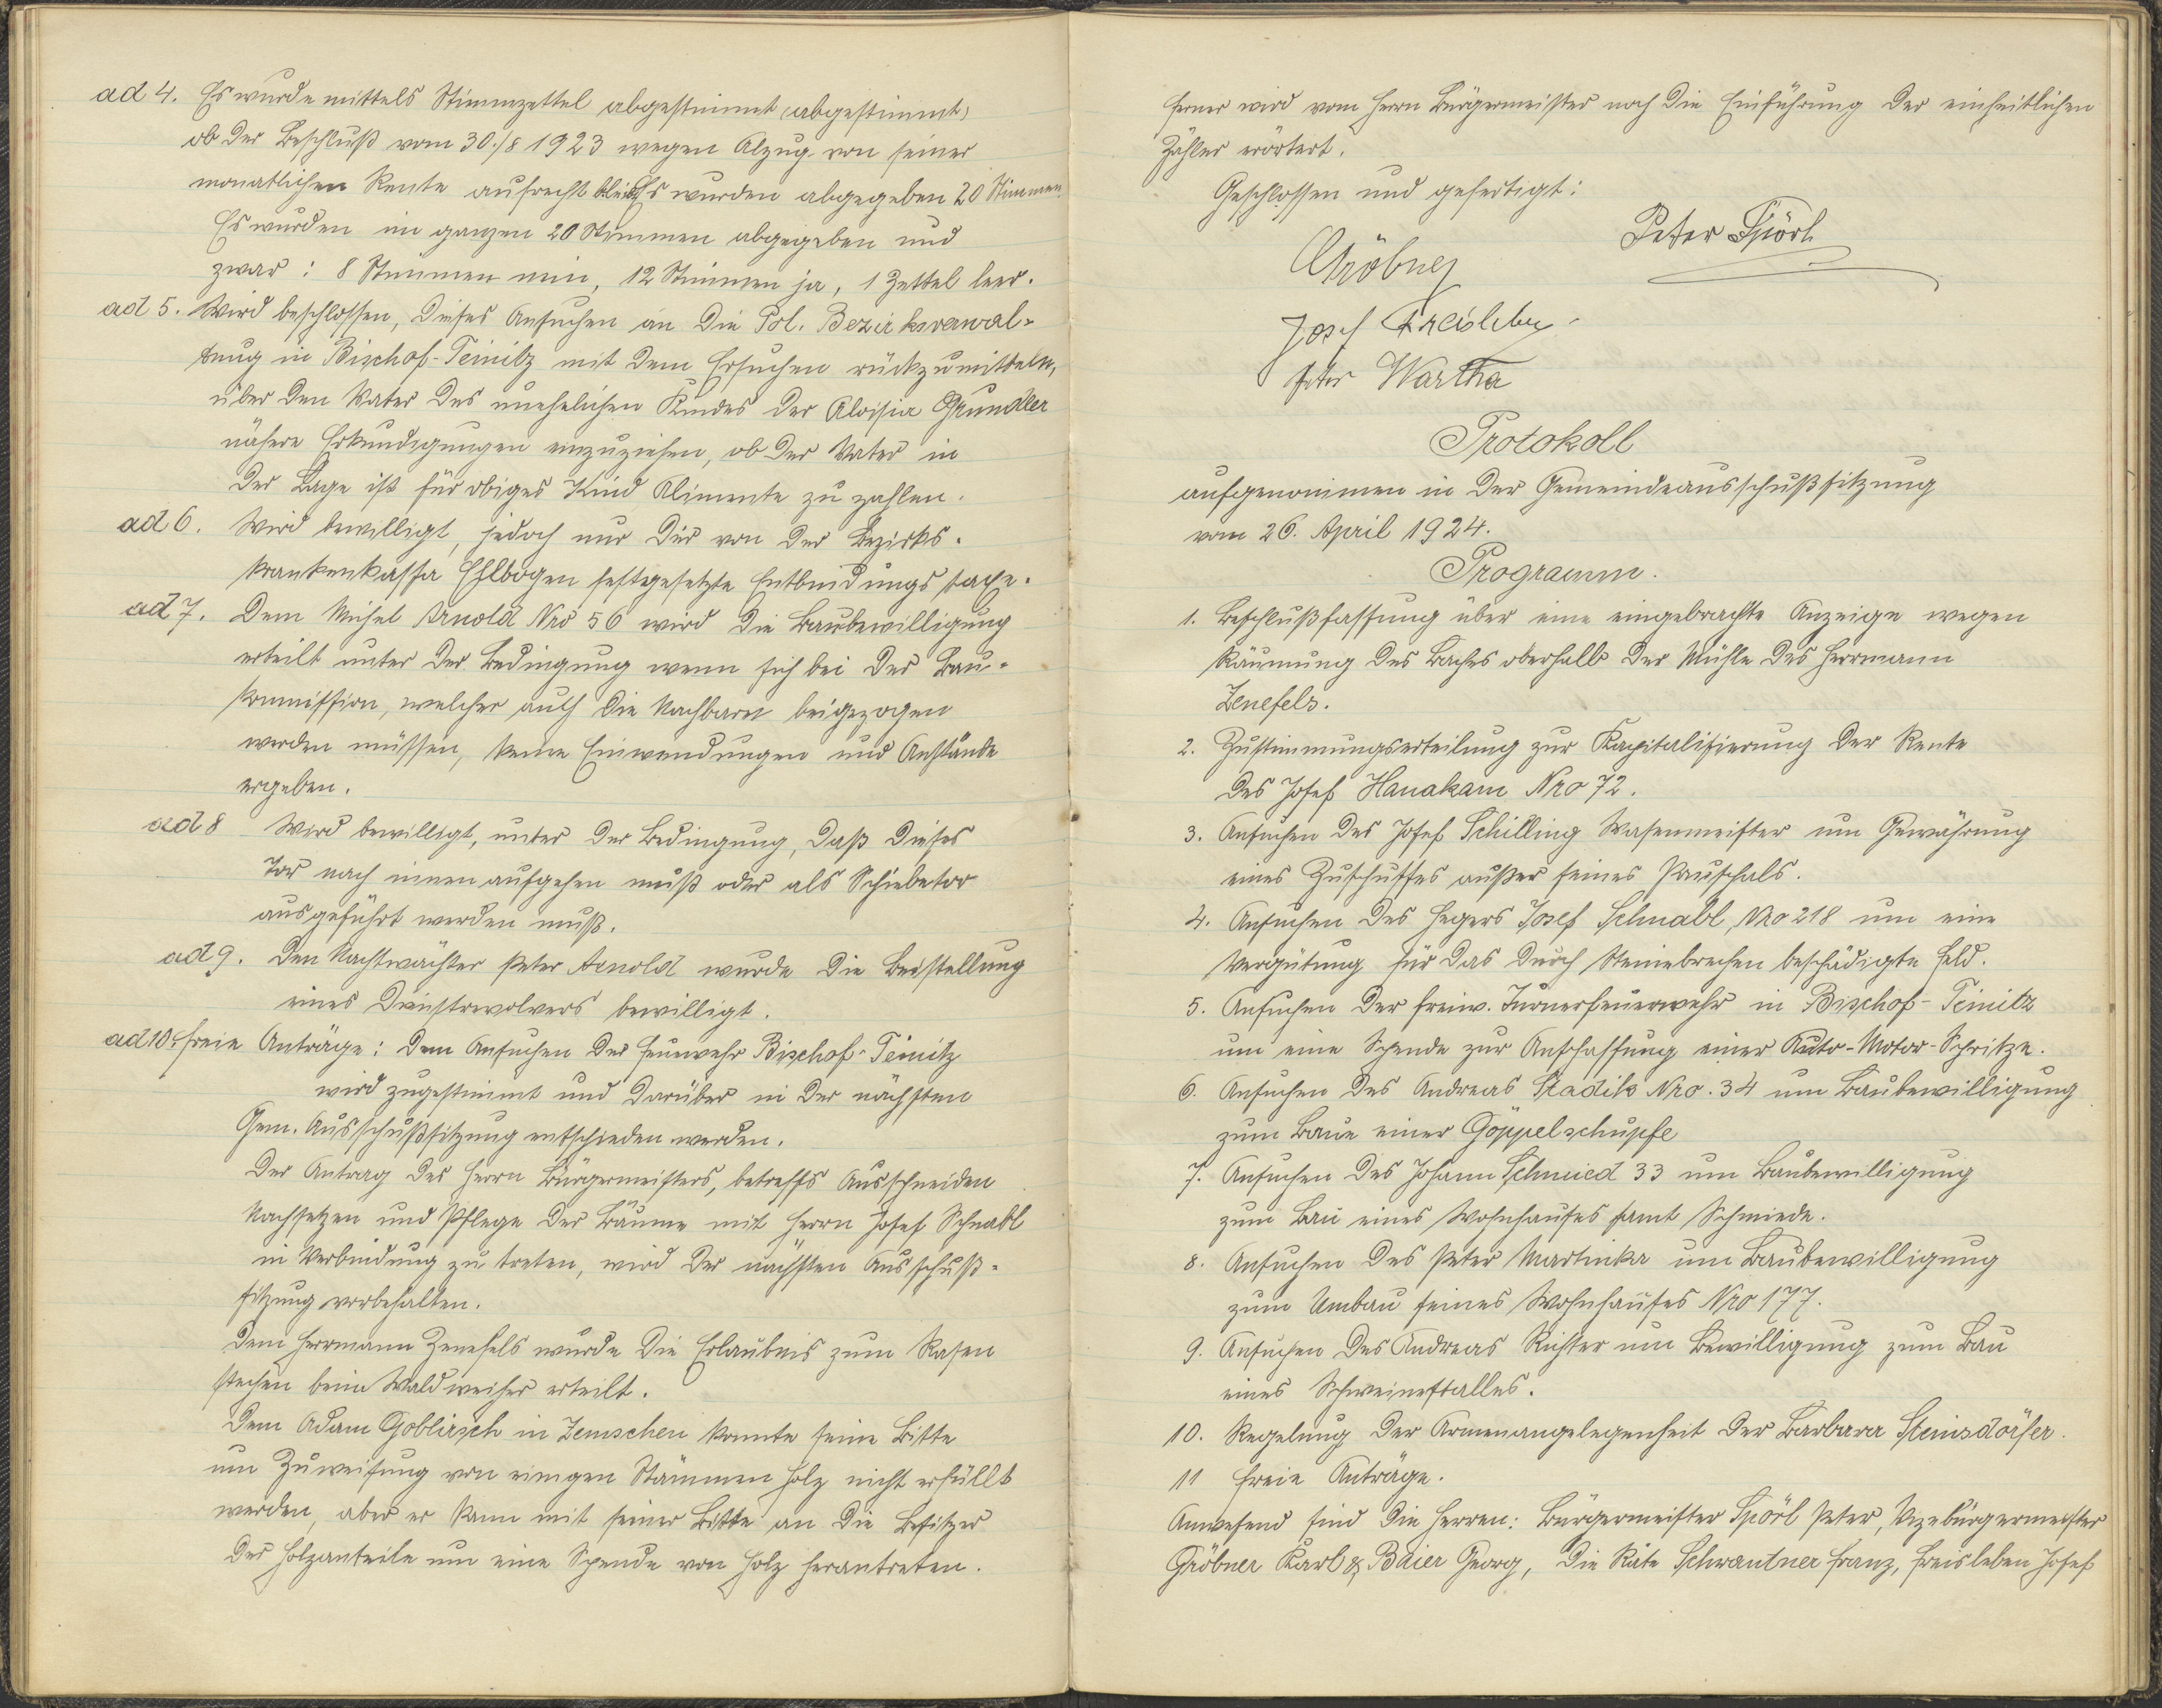 ad 4. Es wurde mittels Stimmzettel abgestimmt (abgestimmt)
ob der Beschluß vom 30./8 1923 wegen Abzug von seiner
monatlichen Rente aufrecht bleibt. Es wurden abgegeben 20 Stimmen.
Es wurden im ganzen 20 Stimmen abgegeben und
zwar: 8 Stimmen nein, 12 Stimmen ja, 1 Zettel leer.
ad 5. Wird beschlossen, dieses Ansuchen an die Pol. Bezirksverwal-
tung in Bischof-Teinitz mit dem Ersuchen rückzumitteln,
über den Vater des unehelichen Kindes der Aloisia Grundler
nähere Erkundigungen einzuziehen, ob der Vater in
der Lage ist für obiges Kind Alimente zu zahlen.
ad 6. Wird bewilligt, jedoch nur die von der Bezirks-
krankenkassa Ellbogen festgesetzte Entbindungstaxe.
ad 7. Dem Michel Arnold Nro 56 wird die Baubewilligung
erteilt unter der Bedingung wenn sich bei der Bau-
kommission, welcher auch die Nachbarn beigezogen
werden müssen, keine Einwendungen und Anstände
ergeben.
ad 8 Wird bewilligt, unter der Bedingung, daß dieses
Tor nach innen aufgehen muß oder als Schiebetor
ausgeführt werden muß.
ad 9. Den Nachtwächter Peter Arnold wurde die Beistellung
eines Dienstrevolvers bewilligt.
ad 10. freie Anträge: Dem Ansuchen der Feuerwehr Bischof-Teinitz
wird zugestimmt und darüber in der nächsten
Gem. Ausschußsitzung entschieden werden.
Der Antrag des Herrn Bürgermeisters, betreffs Ausschneiden
Nachsetzen und Pflege der Bäume mit Herrn Josef Schnabl
in Verbindung zu treten, wird der nächsten Ausschuß-
sitzung vorbehalten.
Dem Herrmann Zenefels wurde die Erlaubnis zum Rasen
stechen beim Waldweiher erteilt.
Dem Adam Goblirsch in Zemschen konnte seine Bitte
um Zuweisung von einigen Stämmen Holz nicht erfüllt
werden, aber er kann mit seiner Bitte an die Besitzer
der Holzanteile um eine Spende von Holz herantreten.
Ferner wird vom Herrn Bürgermeister noch die Einführung der einheitlichen
Zähler erörtert.
Geschlossen und gefertigt:
Peter Spörl
Gröbner
Josef Freisleben
Peter Wartha
Protokoll
aufgenommen in der Gemeindeausschußsitzung
vom 26. April 1924.
Programm.
1. Beschlußfassung über eine eingebrachte Anzeige wegen
Räumung des Baches oberhalb der Mühle des Herrmann
Zenefels.
2. Zustimmungserteilung zur Kapitalisierung der Rente
des Josef Hanakam Nro 72.
3. Ansuchen des Josef Schilling Wasenmeister um Gewährung
eines Zuschusses außer seines Pauschals.
4. Ansuchen des Hegers Josef Schnabl, Nro 218 um eine
Vergütung für das durch Steinebrechen beschädigte Feld.
5. Ansuchen der freiw. Turnerfeuerwehr in Bischof-Teinitz
um eine Spende zur Anschaffung einer Auto-Motor-Spritze.
6. Ansuchen des Andreas Stadik Nro. 34 um Baubewilligung
zum Baue einer Göppelschupfe
7. Ansuchen des Johann Schmied 33 um Baubewilligung
zum Bau eines Wohnhauses samt Schmiede.
8. Ansuchen des Peter Martinka um Baubewilligung
zum Umbau seines Wohnhauses Nro 177.
9. Ansuchen des Andreas Richter um Bewilligung zum Bau
eines Schweinestalles.
10. Regelung der Armenangelegenheit der Barbara Steinsdörfer.
11 freie Anträge.
Anwesend sind die Herren: Bürgermeister Spörl Peter, Vizebürgermeister
Gröbner Karl & Baier Georg, die Räte Schwantner Franz, Freisleben Josef